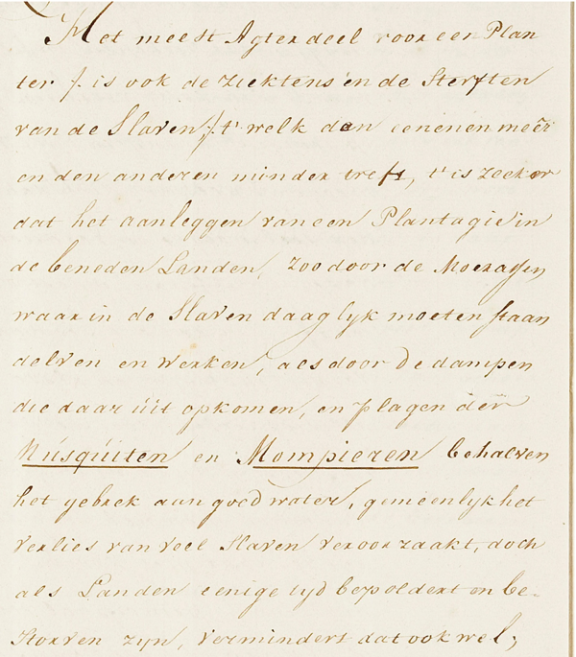 Het meest Agterdeel voor een Plan
ter /. is ook de ziektens en de Sterften
van de Slaven /. t' welk dan eenen meer
en den anderen minder treft, t' is zeeker
dat het aanleggen van een Plantagie in
de beneden Landen, zoo door de Moerassen
waar in de Slaven daaglyk moeten staan
delven en werken, als door de dampen
die daar uit opkomen, en plagen der
Musquiten en Mompieren behalven
het gebrek aan goed water, gemeenlyk het
verlies van veel Slaven veroorzaakt, doch
als Landen eenige tyd bepoldert en be-
 zyn, vermindert dat ook wel,